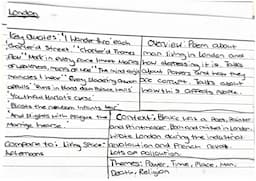 London
Key Quotes: "I wander thro' each
charter'd street" "charter'd Thames
flow" "Mark in every face I meet Marks
of weakness, marks of woe" "The mind
manacles I hear" "Every blackening church
appalls" "Runs in blood down Palace walls"
"Youthful Harlot's curse"
"Blasts the newborn Infants tear"
"And blights with plagues the
marriage hearse"
Compare to: Living Space
Afternoons
Overview: Poem about
man living in London and
how depressing it is. Talks
about Powers and how they
are corrupt. Talks about
how this affects people.
Context: Blake was a Poet, Painter
and Printmaker. Born and in London
Wrote London during the industrial
revolution and French revol.
Lots of pollution.
Themes: Power, Time, Place, Man,
Death, Religion